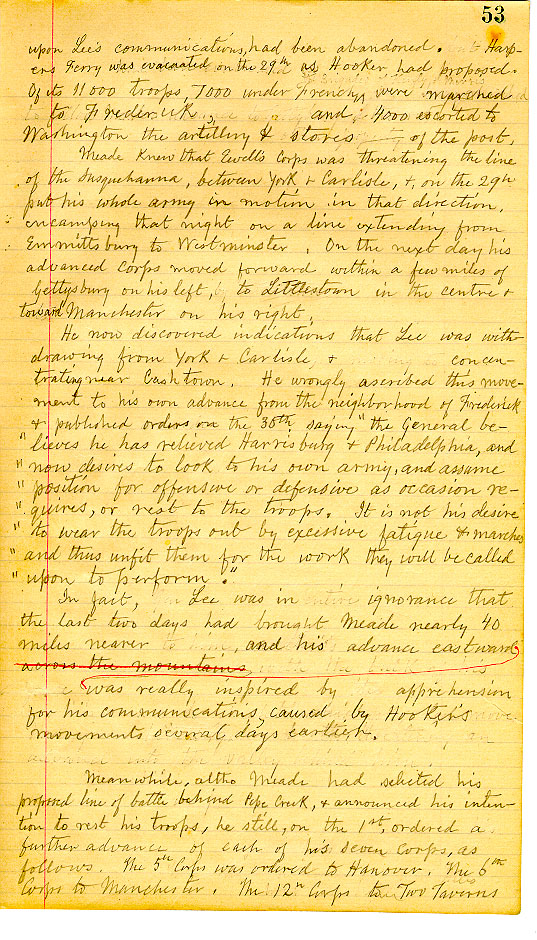 53
upon Lee's communications, had been abandoned. Harp-
ers Ferry was evacuated on the 29th as Hooker had proposed.
Of its 11000 troops, 7000 under French, were marched
to Frederick, and 4000 escorted to
Washington the artillery & stores of the post.
Meade knew that Ewell's Corps was threatening the line
of the Susquehanna, between York & Carlisle, &, on the 29th
put his whole army in motion in that direction,
encamping that night on a line extending from
Emmittsburg to Westminster. On the next day his
advanced corps moved forward within a few miles of
Gettysburg on his left, to Littlestown in the centre &
toward Manchester on his right.
He now discovered indications that Lee was with-
drawing from York & Carlisle & concen-
trating near Cashtown. He wrongly ascribed this move-
ment to his own advance from the neighborhood of Frederick
& published orders on the 30th saying "the General be-
"lieves he has relieved Harrisburg & Philadelphia, and
"now desires to look to his own army, and assume
"position for offensive or defensive as occasion re-
"quires, or rest to the troops. It is not his desire
"to wear the troops out by excessive fatigue & marches
"and thus unfit them for the work they will be called
"upon to perform."
In fact, Lee was in ignorance that
the last two days had brought Meade nearly 40
miles nearer and his advance eastward
across the mountains
was really inspired by apprehension
for his communications, caused by Hooker's
movements several days earlier.
Meanwhile, altho Meade had selected his
proposed line of battle behind Pipe Creek, & announced his inten-
tion to rest his troops, he still, on the 1st, ordered a
further advance of each of his seven corps, as
follows. The 5th Corps was ordered to Hanover. The 6th
Corps to Manchester. The 12th Corps to Two Taverns